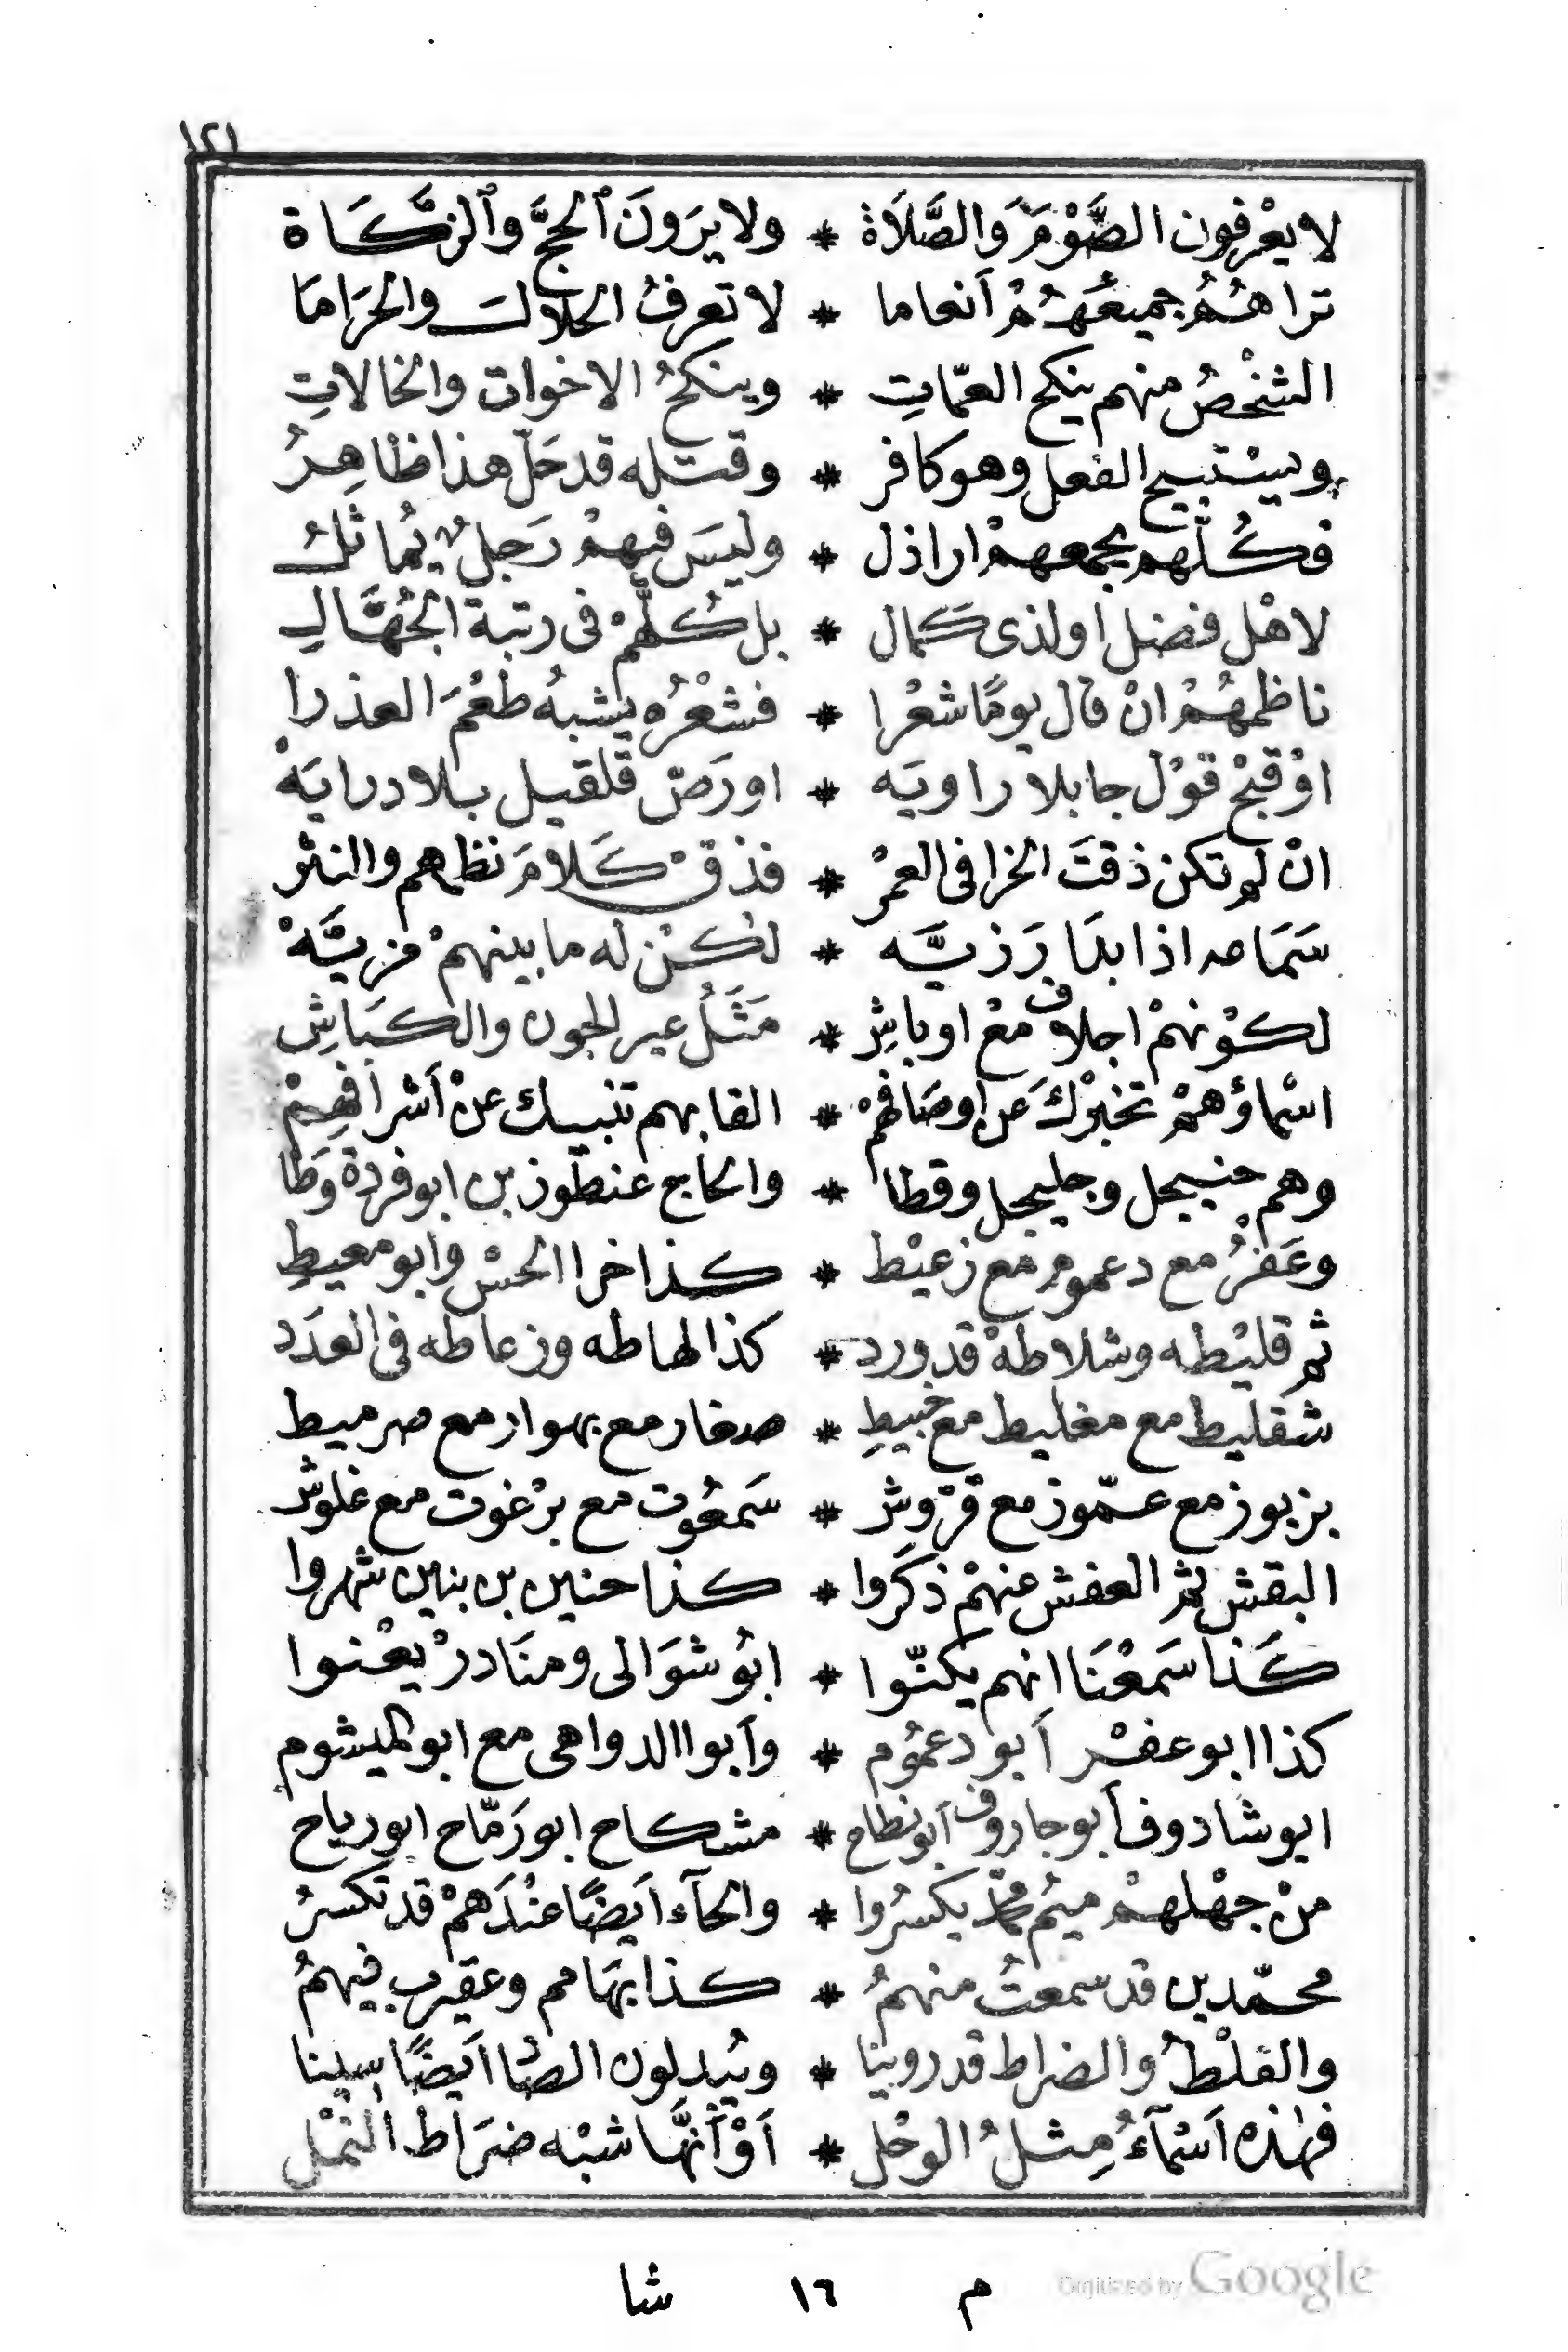 ١٢١
لا يعْرفون الصَّوْمَ وَالصَّلَاة * ولا يرَونَ ٱلحجَّ وٱلزكَاة
تراهُمُ جميعُهُمُ أنعاما * لا تعرفُ الحلالَ والحرَاما
الشخْصُ منهم ينكح العمّاتِ * وينكحُ الاخوات والخالاتِ
ويسْتبيح الفعل وهو كافر * وقتله قد حَلّ هذا ظاهِرُ
فكُلّهم بجمعهمْ اراذل * وليسَ فيهمْ رَجلٌ يُماثلُ
لاهْل فضل او لذى كمال * بل كُلّهمْ فى رتبة الجُهَّالِ
ناظمهُمُ انْ قال يومًا شعْرا * فشعْرُه يشبهُ طعْمَ العذرا
اوْ قبحْ قوْل جا بلا راويَه * او رَصّ قلقيل بلا درايَهْ
انْ لم تكن ذقتَ الخرا فى العمرْ * فذقْ كَلامَ نظمهم والنثر
سَمَاعه اذا بدَا رَزيَّه * لكنْ له ما بينهمْ مزيَّهْ
لكوْنهمْ اجلاف معْ اوباشِ * مَثَلُ عير الجون والكبَاشِ
اسْماؤهمْ تخبرْكَ عن اوصَافهمْ * القابهم تنبيك عنْ أشرافهِمْ
وهم جنيجل وجليجل وقطا * والحاج عنطوز بن ابو فردة وَطا
وعَفرُ مع دعموم مع زعيْط * كذا خرا الحسْ وابو معيطِ
ثم قليْطه وشلاطهْ قد ورد * كذا لهاطه وزعاطه فى العدَد
شقليط مع مغليط مع خبيطِ * صغار مع بهوار مع صرميط
بزبوز مع عمّوز مع قرّوش * سَمعُوت مع برْغوت مع غلوش
البقش ثم العفش منهمْ ذكَروا * كذا حنين بن بنين شهروا
كَذا سَمعْنَا انهم يكنّوا * ابُو شوَالى ومنَادرْ يعْنوا
كذا ابو عفرْ أبو دعمُوم * وأبوا الدواهى مع ابو لميشوم
ابو شادوف أبو جاروف أبو نطاح * مشكاح ابو رَمّاح ابو رياح
منْ جهْلهمْ ميمُ محمّد يكسرُوا * والحآء ايَضًا عنْدَهمْ قد تكسرُ
محمّدين قد سمعتُ منهمُ * كذا بهَامم وعقيرب فيهمُ
والقلْطُ والضراط قد روينا * ويُبدلون الصّا ايَضًا سينا
فهٰذه اَسْمآءُ مِثلُ الوحْل * أوْ أنهَّا شبْه ضرَاط النمْل
م ١٦ شا
Digitized by Google